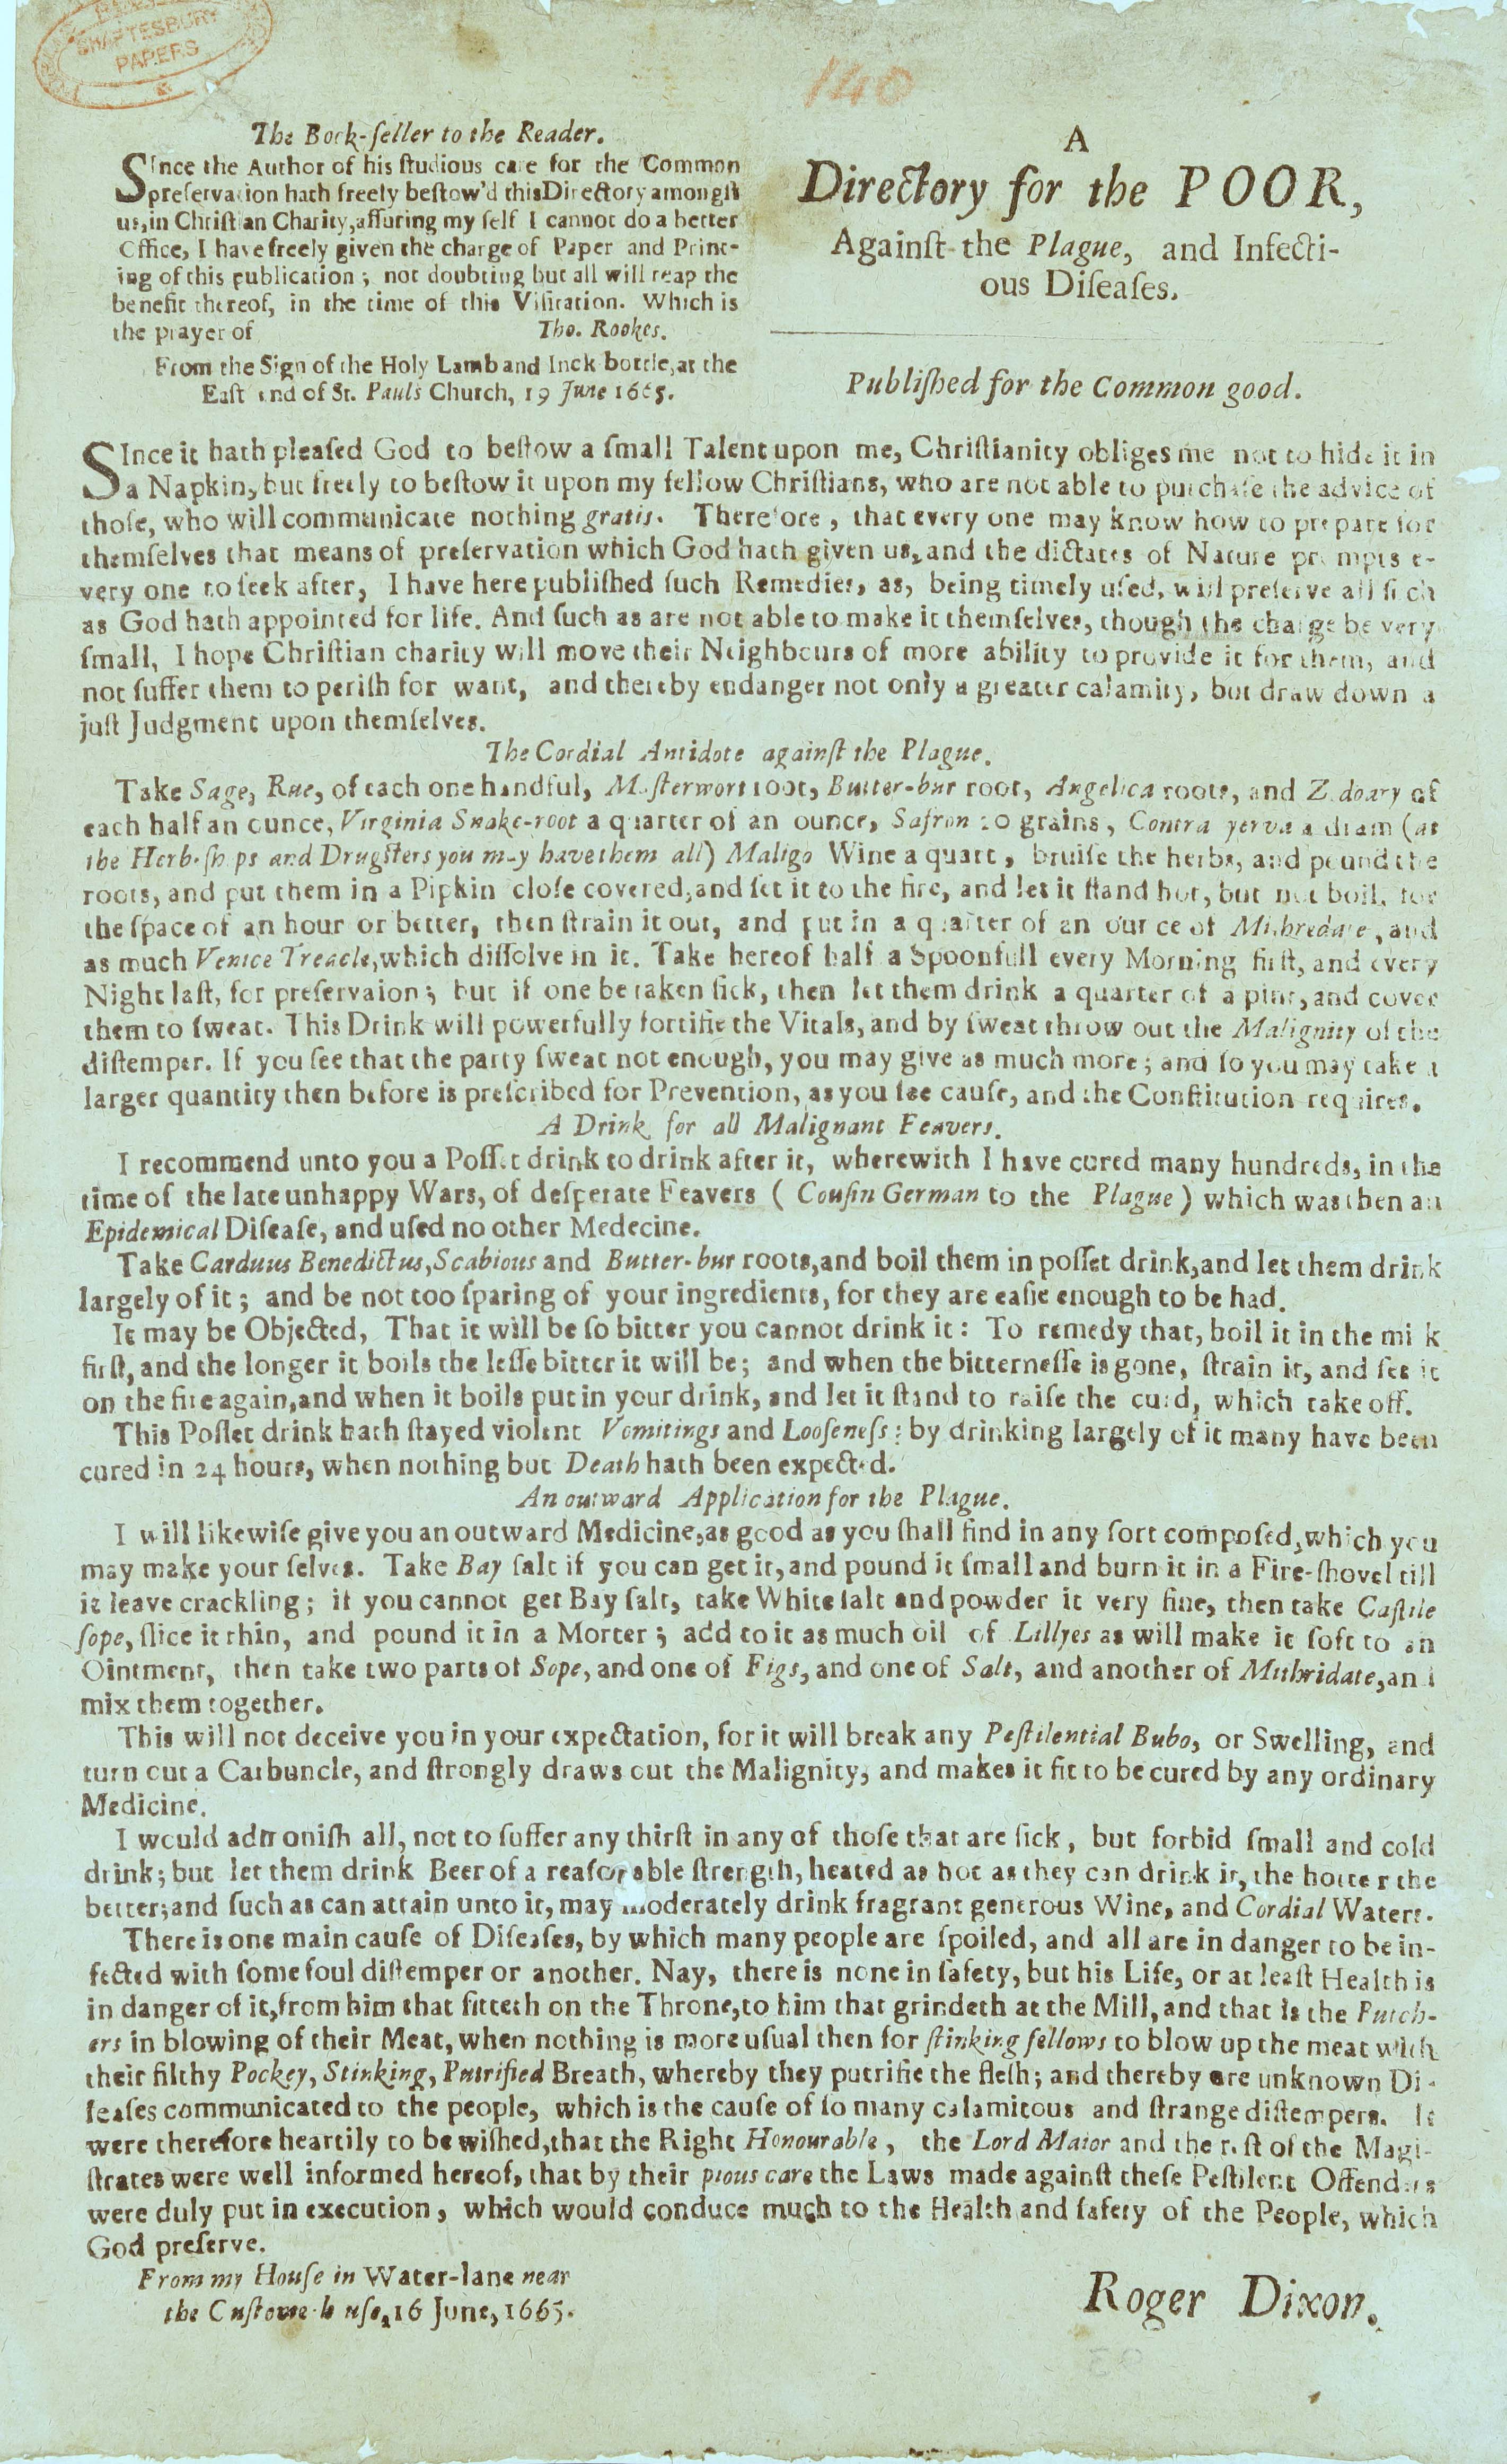 SHAFTESBURY
PAPERS
140
The Book-ſeller to the Reader.
SInce the Author of his ſtudious care for the Common
preſervation hath freely beſtow'd this Directory amongſt
us, in Chriſtian Charity, aſſuring my ſelf I cannot do a better
Office, I have freely given the charge of Paper and Print-
ing of this publication; not doubting but all will reap the
benefit thereof, in the time of this Viſitation. Which is
the prayer of Tho. Rookes.
From the Sign of the Holy Lamb and Inck bottle, at the
Eaſt end of St. Pauls Church, 19 June 1665.
A
Directory for the POOR,
Againſt the Plague, and Infecti-
ous Diſeaſes.
Publiſhed for the Common good.
SInce it hath pleaſed God to beſtow a ſmall Talent upon me, Chriſtianity obliges me not to hide it in
a Napkin, but freely to beſtow it upon my fellow Chriſtians, who are not able to purchaſe the advice of
thoſe, who will communicate nothing gratis. Therefore, that every one may know how to prepare for
themſelves that means of preſervation which God hath given us, and the dictates of Nature prompts e-
very one to ſeek after, I have here publiſhed ſuch Remedies, as, being timely uſed, will preſerve all ſuch
as God hath appointed for life. And ſuch as are not able to make it themſelves, though the charge be very
ſmall, I hope Chriſtian charity will move their Neighbours of more ability to provide it for them, and
not ſuffer them to periſh for want, and thereby endanger not only a greater calamity, but draw down a
juſt Judgment upon themſelves.
The Cordial Antidote againſt the Plague.
Take Sage, Rue, of each one handful, Maſterwort root, Butter-bur root, Angelica roots, and Zedoary of
each half an ounce, Virginia Snake-root a quarter of an ounce, Safron 20 grains, Contra yerva a dram (at
the Herb-ſhops and Drugſters you may have them all) Maligo Wine a quart, bruiſe the herbs, and pound the
roots, and put them in a Pipkin cloſe covered, and ſet it to the fire, and let it ſtand hot, but not boil, for
the ſpace of an hour or better, then ſtrain it out, and put in a quarter of an ounce of Mithredate, and
as much Venice Treacle, which diſſolve in it. Take hereof half a Spoonfull every Morning firſt, and every
Night laſt, for preſervaion; but if one be taken ſick, then let them drink a quarter of a pint, and cover
them to ſweat. This Drink will powerfully fortifie the Vitals, and by ſweat throw out the Malignity of the
diſtemper. If you ſee that the party ſweat not enough, you may give as much more; and ſo you may take a
larger quantity then before is preſcribed for Prevention, as you ſee cauſe, and the Conſtitution requires.
A Drink for all Malignant Feavers.
I recommend unto you a Poſſet drink to drink after it, wherewith I have cured many hundreds, in the
time of the late unhappy Wars, of deſperate Feavers (Couſin German to the Plague) which was then an
Epidemical Diſeaſe, and uſed no other Medecine.
Take Carduus Benedictus, Scabious and Butter-bur roots, and boil them in poſſet drink, and let them drink
largely of it; and be not too ſparing of your ingredients, for they are eaſie enough to be had.
It may be Objected, That it will be ſo bitter you cannot drink it: To remedy that, boil it in the milk
firſt, and the longer it boils the leſſe bitter it will be; and when the bitterneſſe is gone, ſtrain it, and ſet it
on the fire again, and when it boils put in your drink, and let it ſtand to raiſe the curd, which take off.
This Poſſet drink hath ſtayed violent Vomitings and Looſeneſs: by drinking largely of it many have been
cured in 24 hours, when nothing but Death hath been expected.
An outward Application for the Plague.
I will likewiſe give you an outward Medicine, as good as you ſhall find in any ſort compoſed, which you
may make your ſelves. Take Bay ſalt if you can get it, and pound it ſmall and burn it in a Fire-ſhovel till
it leave crackling; if you cannot get Bay ſalt, take White ſalt and powder it very fine, then take Caſtile
ſope, ſlice it thin, and pound it in a Morter; add to it as much oil of Lillyes as will make it ſoft to an
Ointment, then take two parts of Sope, and one of Figs, and one of Salt, and another of Mithridate, and
mix them together.
This will not deceive you in your expectation, for it will break any Peſtilential Bubo, or Swelling, and
turn out a Carbuncle, and ſtrongly draws out the Malignity, and makes it fit to be cured by any ordinary
Medicine.
I would admoniſh all, not to ſuffer any thirſt in any of thoſe that are ſick, but forbid ſmall and cold
drink; but let them drink Beer of a reaſonable ſtrength, heated as hot as they can drink it, the hotter the
better; and ſuch as can attain unto it, may moderately drink fragrant generous Wine, and Cordial Waters.
There is one main cauſe of Diſeaſes, by which many people are ſpoiled, and all are in danger to be in-
fected with ſome foul diſtemper or another. Nay, there is none in ſafety, but his Life, or at leaſt Health is
in danger of it, from him that ſitteth on the Throne, to him that grindeth at the Mill, and that is the Butch-
ers in blowing of their Meat, when nothing is more uſual then for ſtinking fellows to blow up the meat with
their filthy Pockey, Stinking, Putrified Breath, whereby they putrifie the fleſh; and thereby are unknown Di-
ſeaſes communicated to the people, which is the cauſe of ſo many calamitous and ſtrange diſtempers. It
were therefore heartily to be wiſhed, that the Right Honourable, the Lord Maior and the reſt of the Magi-
ſtrates were well informed hereof, that by their pious care the Laws made againſt theſe Peſtilent Offenders
were duly put in execution, which would conduce much to the Health and ſafety of the People, which
God preſerve.
From my Houſe in Water-lane near
the Cuſtome-houſe, 16 June, 1665.
Roger Dixon.